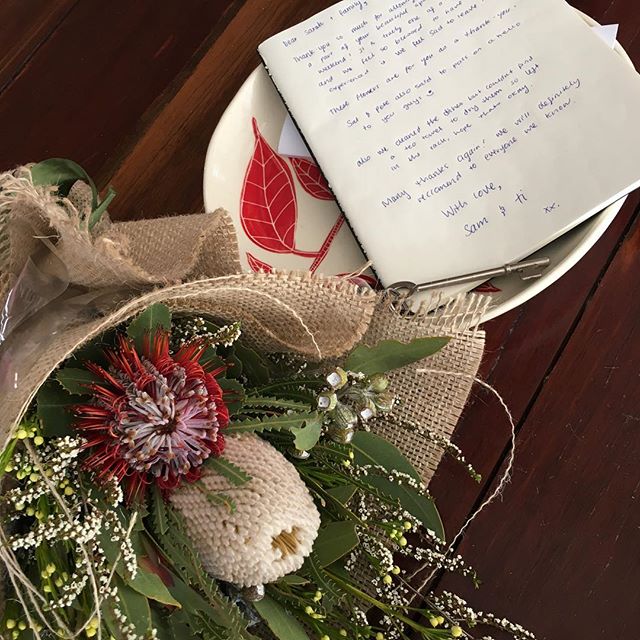 Dear Sarah & Family,
Thank you so much for allowing
a part of your beautiful
weekend. It is really one of a
and we feel so blessed to have
experienced it. We feel sad to leave
These flowers are for you as a thank you.
Sal & Pete also said to pass on a hello
to you guys
also we cleaned the dishes but couldn't find
a tea towel to dry them so left
in the rack, hope that's okay.
Many thanks again! We will definitely
recommend to everyone we know.
With love,
Sam & Ti
xx.